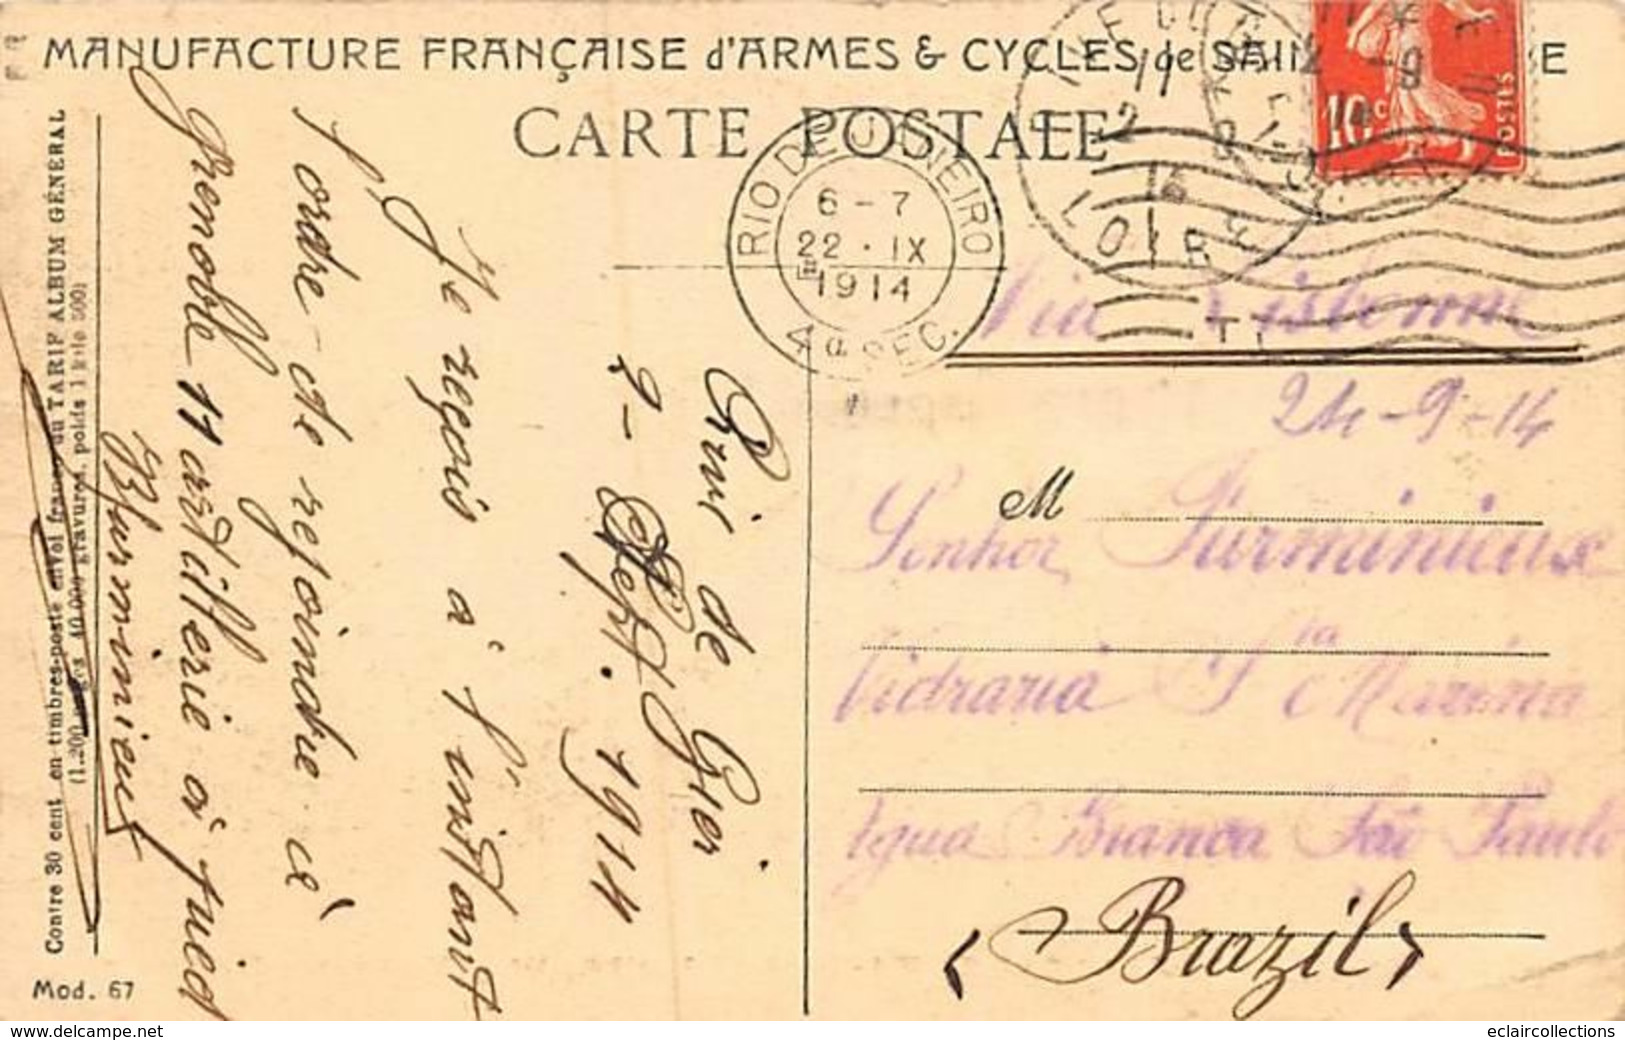 MANUFACTURE FRANÇAISE d'ARMES & CYCLES de SAIN E
CARTE POSTALE
10c
POSTES
RIO DE JANEIRO
6 - 7
22 · IX
1914
4a SEC.
11
2 - 9
14
LOIRE
Via Lisbonne
24-9-14
M
Senhor Furminieux
Vidraria Sta Marina
Agua Branca São Paulo
(Brazil)
de Gier
2 - Sept. 1914
Je reçois à l'instant
l'ordre de rejoindre à
Grenoble 11 artillerie à pied
Contre 30 cent. en timbres-poste envoi franco du TARIF ALBUM GÉNÉRAL
(1.200 pages, 40.000 gravures, poids 1 kilo 500)
Mod. 67
www.delcampe.net
eclaircollections